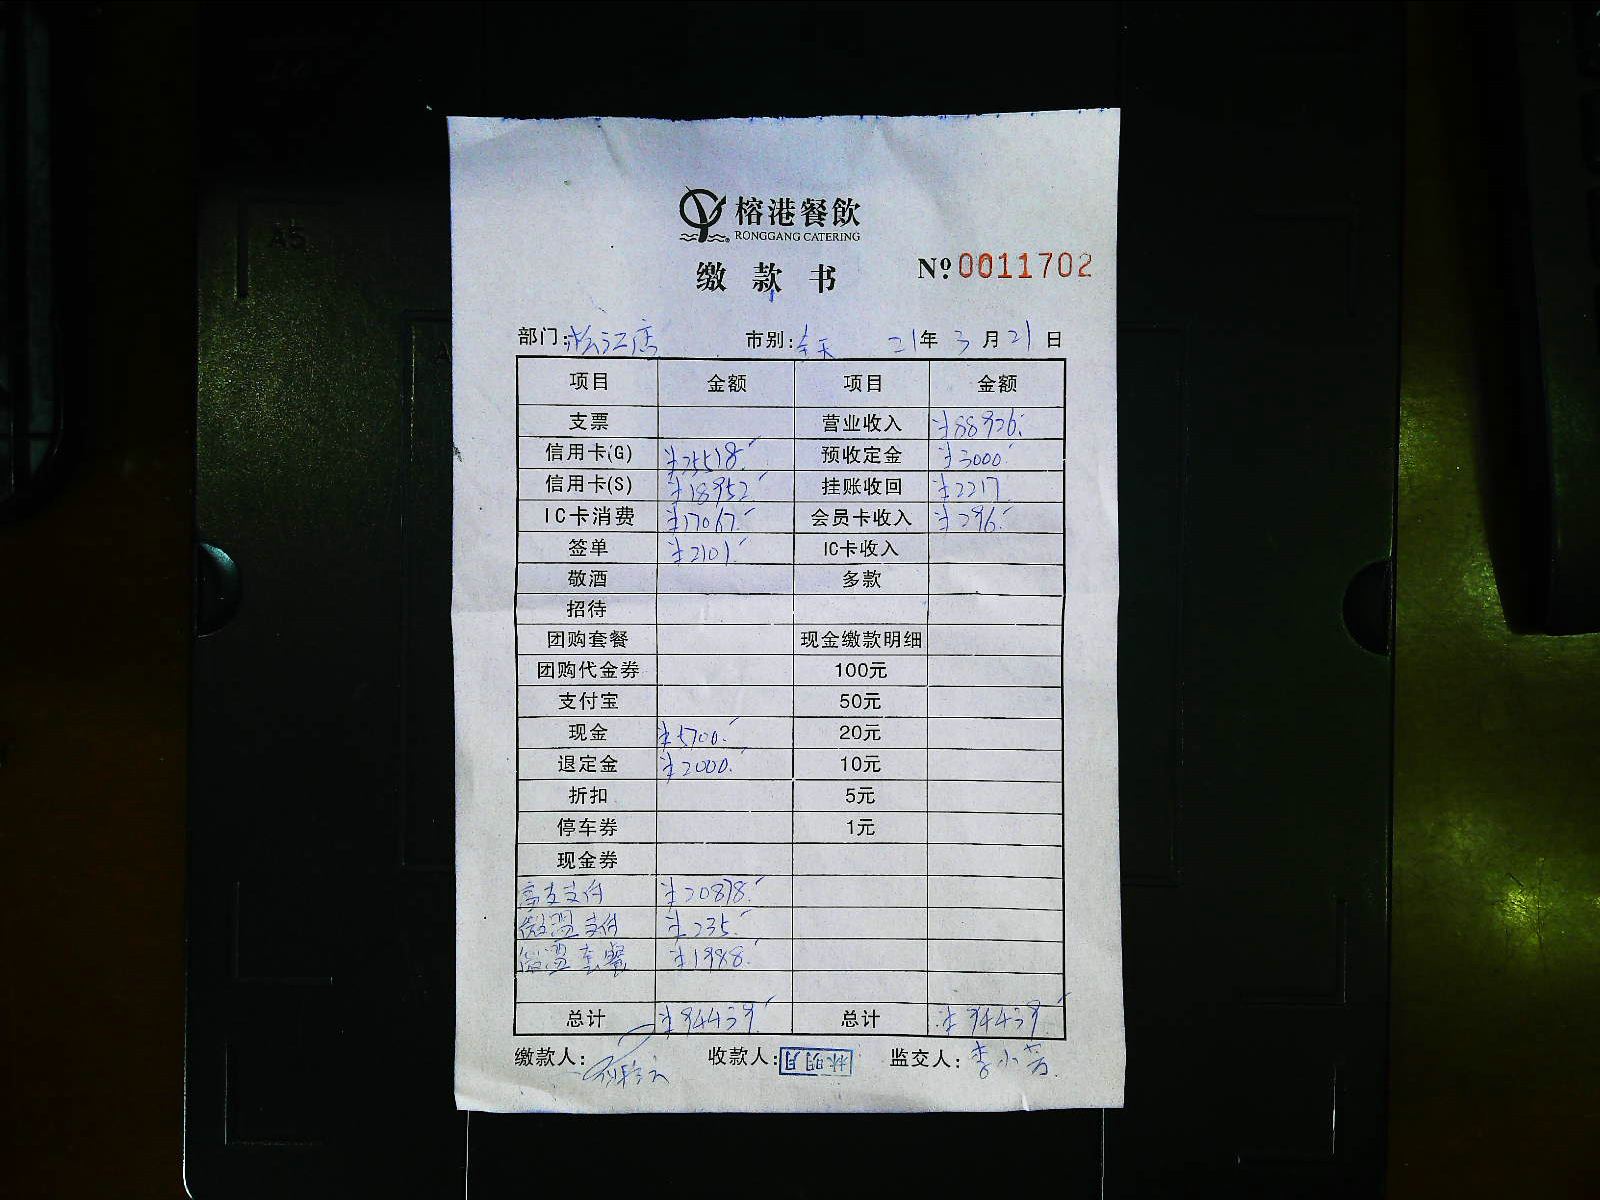 榕港餐飲
RONGGANG CATERING
缴款书 № 0011702
部门:松江店 市别:全天 21年 3月21日
项目 金额 项目 金额
支票 营业收入 ¥88926.
信用卡(G) ¥25518. 预收定金 ¥3000.
信用卡(S) ¥18952 挂账收回 ¥2217
IC卡消费 ¥17067. 会员卡收入 ¥296.
签单 ¥2101. IC卡收入
敬酒 多款
招待
团购套餐 现金缴款明细
团购代金券 100元
支付宝 50元
现金 ¥5700. 20元
退定金 ¥2000. 10元
折扣 5元
停车券 1元
现金券
支付 ¥20878.
微盟支付 ¥235.
微盟套餐 ¥1988.
总计 ¥94439. 总计 ¥94439.
缴款人: 收款人:林明月 监交人:李小芳